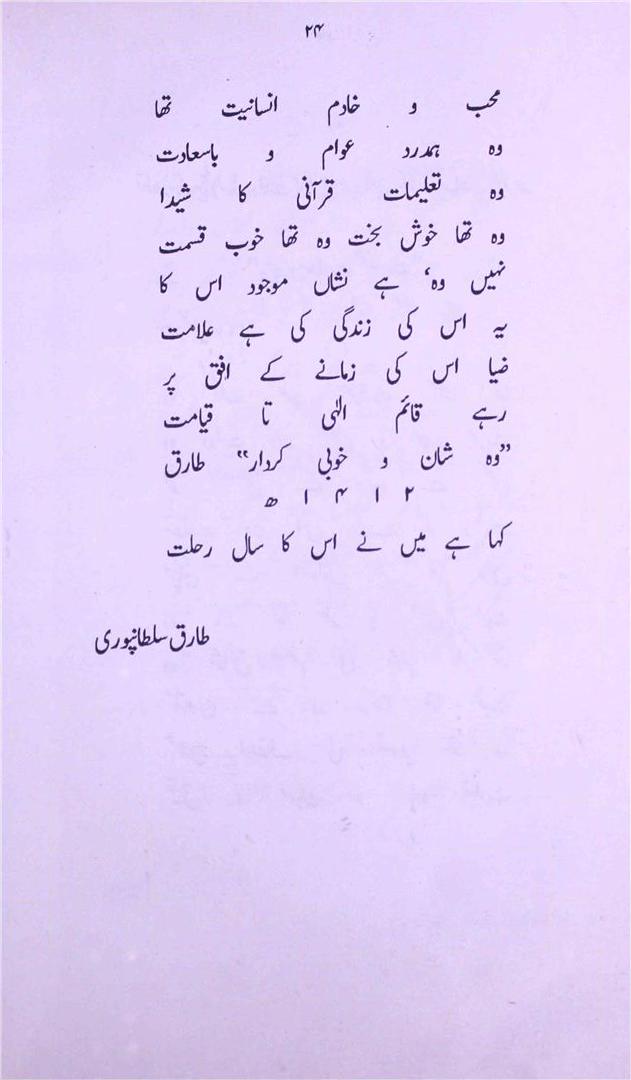 ۲۴
محب و خادم انسانیت تھا
وہ ہمدرد عوام و باسعادت
وہ تعلیمات قرآنی کا شیدا
وہ تھا خوش بخت وہ تھا خوب قسمت
نہیں وہ‘ ہے نشاں موجود اس کا
یہ اس کی زندگی کی ہے علامت
ضیا اس کی زمانے کے افق پر
رہے قائم الٰہی تا قیامت
”وہ شان و خوبی کردار“ طارق
۱۴۱۲ھ
کہا ہے میں نے اس کا سال رحلت
طارق سلطانپوری